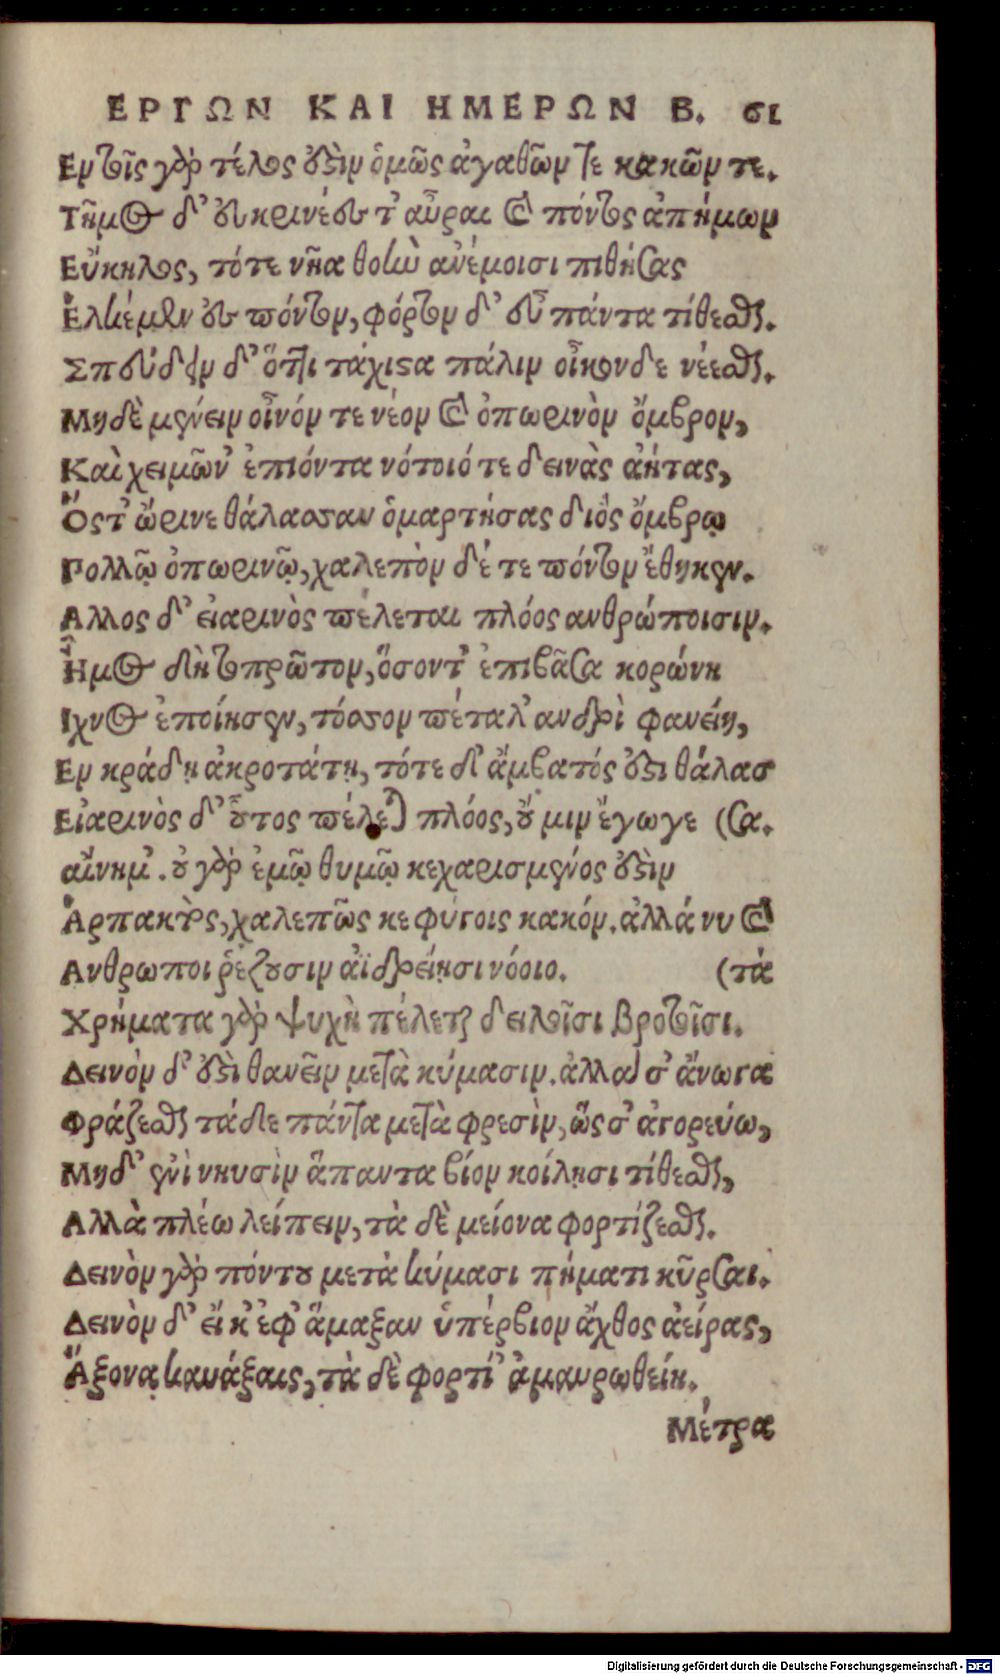 ΕΡΓΩΝ ΚΑΙ ΗΜΕΡΩΝ Β. 61
Εν τοῖς γὰρ τέλος ὀξὶν ὁμῶς ἀγαθῶν τε κακῶν τε.
Τῆμος δ' εὐκρινέες τ' αὖραι καὶ πόντος ἀπήμων
Εὔκηλος, τότε νῆα θοὴν ἀνέμοισι πιθήσας
Ἑλκέμεν ἐς πόντον, φόρτον δ' εὖ πάντα τίθεσθαι.
Σπεύδειν δ' ὅττι τάχιστα πάλιν οἶκονδε νέεσθαι.
Μηδὲ μένειν οἶνόν τε νέον καὶ ὀπωρινὸν ὄμβρον,
Καὶ χειμῶν' ἐπιόντα νότοιό τε δεινὰς ἀήτας,
Ὅς τ' ὤρινε θάλασσαν ὁμαρτήσας διὸς ὄμβρῳ
Πολλῷ ὀπωρινῷ, χαλεπὸν δέ τε πόντον ἔθηκεν.
Αλλος δ' εἰαρινὸς πέλεται πλόος ανθρώποισιν.
Ἦμος δὴ τοπρῶτον, ὅσον τ' ἐπιβᾶσα κορώνη
Ιχνος ἐποίησεν, τόσσον πέταλ' ανδρὶ φανείη,
Εν κράδῃ ἀκροτάτῃ, τότε δ' ἄμβατός ὀξι θάλασ
Εἰαρινὸς δ' οὗτος πέλεται πλόος, οὔ μιν ἔγωγε (σα.
αἴνημ'. οὐ γὰρ ἐμῷ θυμῷ κεχαρισμένος ὀξὶν
Ἁρπακτὸς, χαλεπῶς κε φύγοις κακόν. ἀλλά νυ καὶ
Ανθρωποι ῥέζουσιν αἰδρείῃσι νόοιο. (τὰ
Χρήματα γὰρ ψυχὴ πέλεται δειλοῖσι βροτοῖσι.
Δεινὸν δ' ὀξὶ θανεῖν μετὰ κύμασιν. ἀλλά σ' ἄνωγα
Φράζεσθαι τάδε πάντα μετὰ φρεσὶν, ὥς σ' ἀγορεύω,
Μηδ' ἐνὶ νηυσὶν ἅπαντα βίον κοίλῃσι τίθεσθαι,
Αλλὰ πλέω λείπειν, τὰ δὲ μείονα φορτίζεσθαι.
Δεινὸν γὰρ πόντου μετὰ κύμασι πήματι κῦρσαι.
Δεινὸν δ' εἴ κ' ἐφ' ἅμαξαν ὑπέρβιον ἄχθος ἀείρας,
Ἄξονα καυάξαις, τὰ δὲ φορτί' ἀμαυρωθείη.
Μέτρα
Digitalisierung gefördert durch die Deutsche Forschungsgemeinschaft - DFG